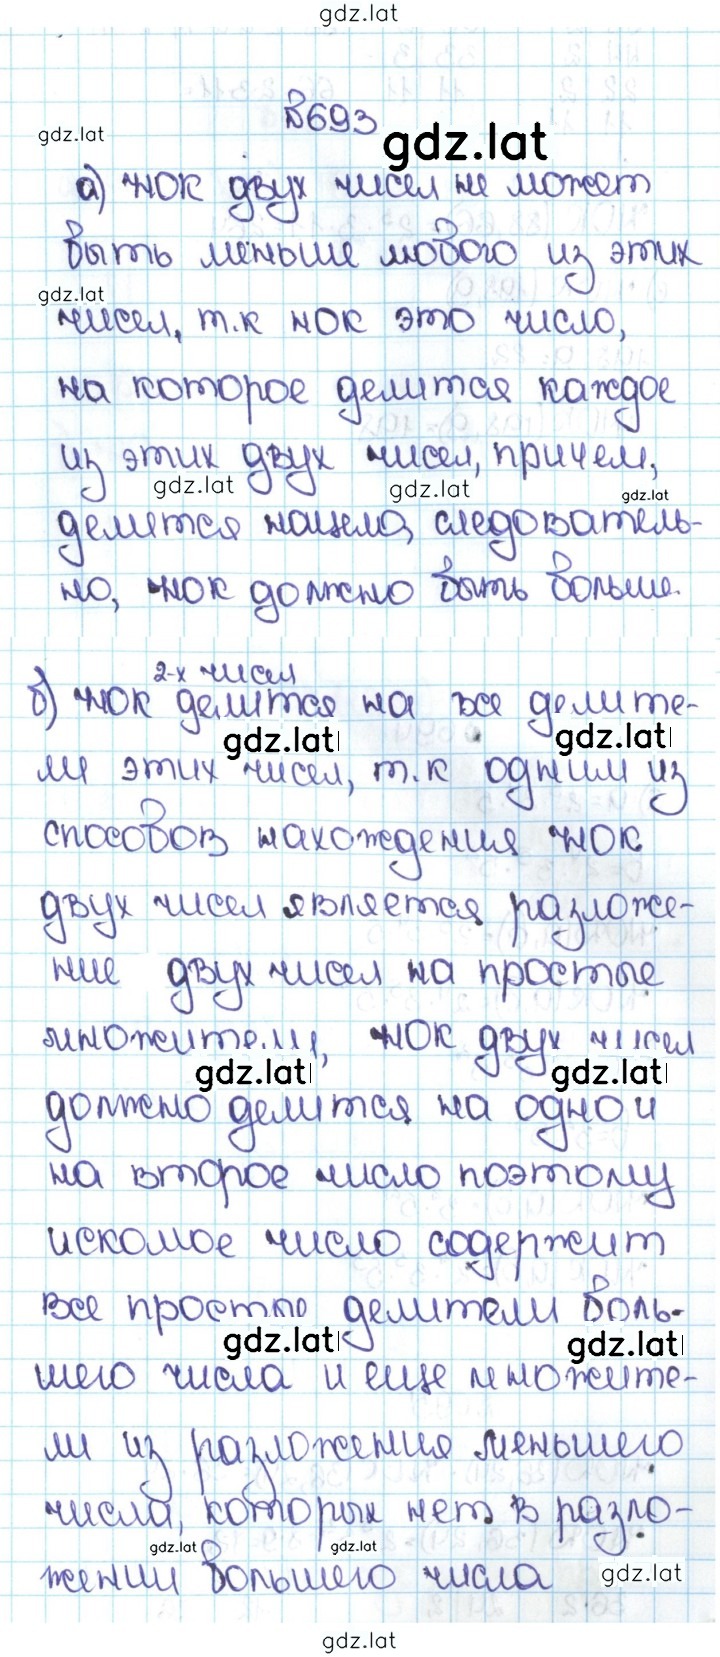 gdz.lat
№693
gdz.lat
gdz.lat
а) НОК двух чисел не может
быть меньше любого из этих
gdz.lat
чисел, т.к НОК это число,
на которое делится каждое
из этих двух чисел, причем,
gdz.lat gdz.lat gdz.lat
делится нацело, следователь-
но, НОК должно быть больше.
2-х чисел
б) НОК делится на все делите-
gdz.lat gdz.lat
ли этих чисел, т.к одним из
способов нахождения НОК
двух чисел является разложе-
ние двух чисел на простые
множители, НОК двух чисел
gdz.lat gdz.lat
должно делится на одно и
на второе число поэтому
искомое число содержит
все простые делители боль-
gdz.lat gdz.lat
шего числа и еще множите-
ли из разложения меньшего
числа, которых нет в разло-
gdz.lat gdz.lat
жении большего числа
gdz.lat
gdz.lat